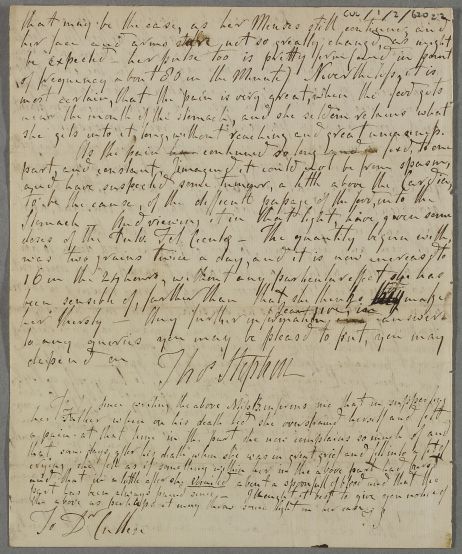 CUL/1/2/620 2/2
that may be the case, as her Menses still continues and
her face and arms are not so greatly changed as might
be expected – her pulse too is pretty firm (and in point
of frequency about 80 in the Minute) Nevertheless, it is
most certain, that the pain is very great, when the food gets
near the mouth of the stomach, and she seldom retains what
she gets into it long, without reaching and great uneasyness.
As the pain has continued so long fixed to one
part, and constant, I imagined it could not be from spasm,
and have suspected some tumour, a little above the Cardia,
to be the cause, of the difficult passage of the food, into the
Stomach – And viewing it in that light, have given some
doses of the Pulv. Fol. Cicutæ – The quantity begun with,
was two grains twice a day, and it is now increased to
16 in the 24 hours, without any particular effect she has
been sensible of, farther than that she thinks it makes
her thirsty – Any further information I can give, in answer
to any queries you may be pleased to put, you may
depend on
Thos Stephen
Since writing the above, Miss informs me that in supporting
her Father, when on his death bed she overstrained herself and felt
a pain at that time in the part she now complains so much of and
that, some days after his death when she was in great grief and
crying, she felt as if something within her, in the above part had burst
and that in a little after she vomited about a spoonfull of blood and that the
part has been always pained since – I thought it best to give you notice of
the above as perhaps it may throw some light on her case
To Dr Cullen